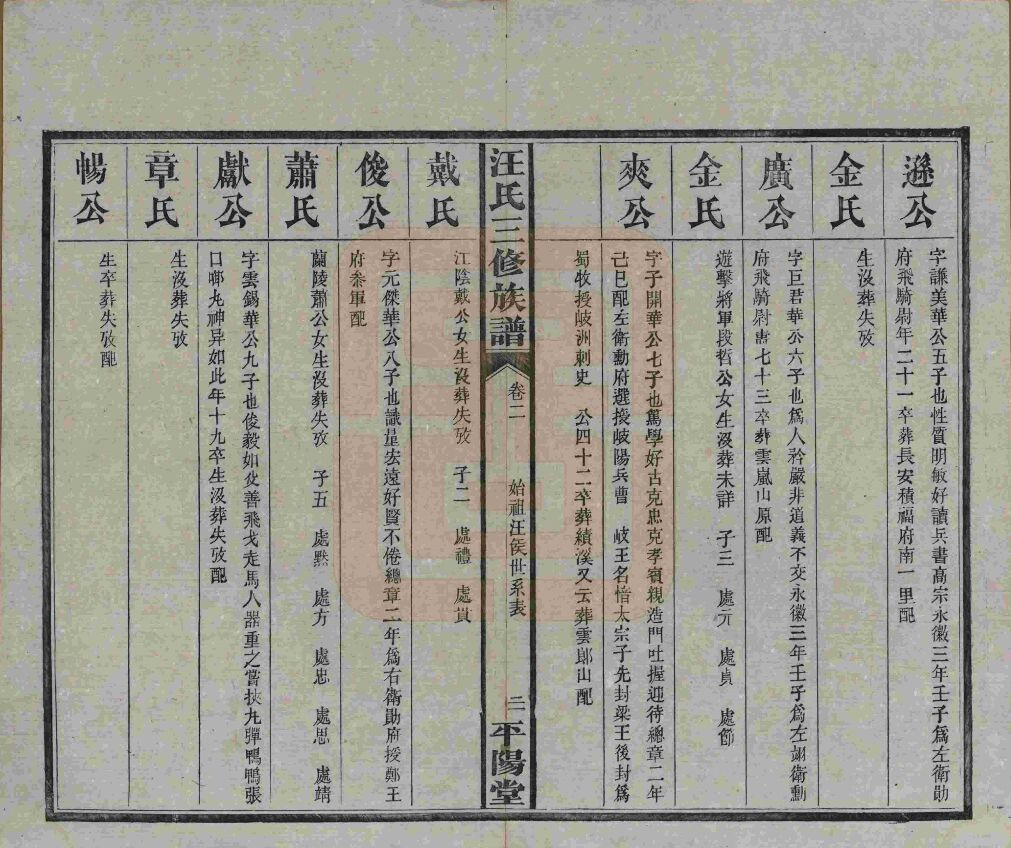 遜公
字謙美華公五子也性質明敏好讀兵書高宗永徽三年壬子為左衛勛
府飛騎尉年二十一卒葬長安積福府南一里配
金氏
生沒葬失攷
廣公
字巨君華公六子也為人矜嚴非道義不交永徽三年壬子為左翊衛勳
府飛騎尉壽七十三卒葬雲嵐山原配
金氏
遊擊將軍段哲公女生沒葬未詳 子三 處元 處貞 處節
爽公
字子開華公七子也篤學好古克忠克孝賓親造門吐握迎待總章二年
己巳配左衛勳府選授岐陽兵曹 岐王名愔太宗子先封梁王後封為
蜀牧授歧洲刺史 公四十二卒葬績溪又云葬雲郎山配
汪氏三修族譜
卷二
始祖汪侯世系表
二
平陽堂
戴氏
江陰戴公女生沒葬失攷 子二 處禮 處貰
俊公
字元傑華公八子也識量宏遠好賢不倦總章二年為右衛勛府授鄭王
府叅軍配
蕭氏
蘭陵蕭公女生沒葬失攷 子五 處默 處方 處忠 處思 處靖
獻公
字雲錫華公九子也俊毅如父善飛戈走馬人器重之嘗挾九彈鴨鴨張
口啣丸神异如此年十九卒生沒葬失攷配
章氏
生沒葬失攷
暢公
生卒葬失攷配